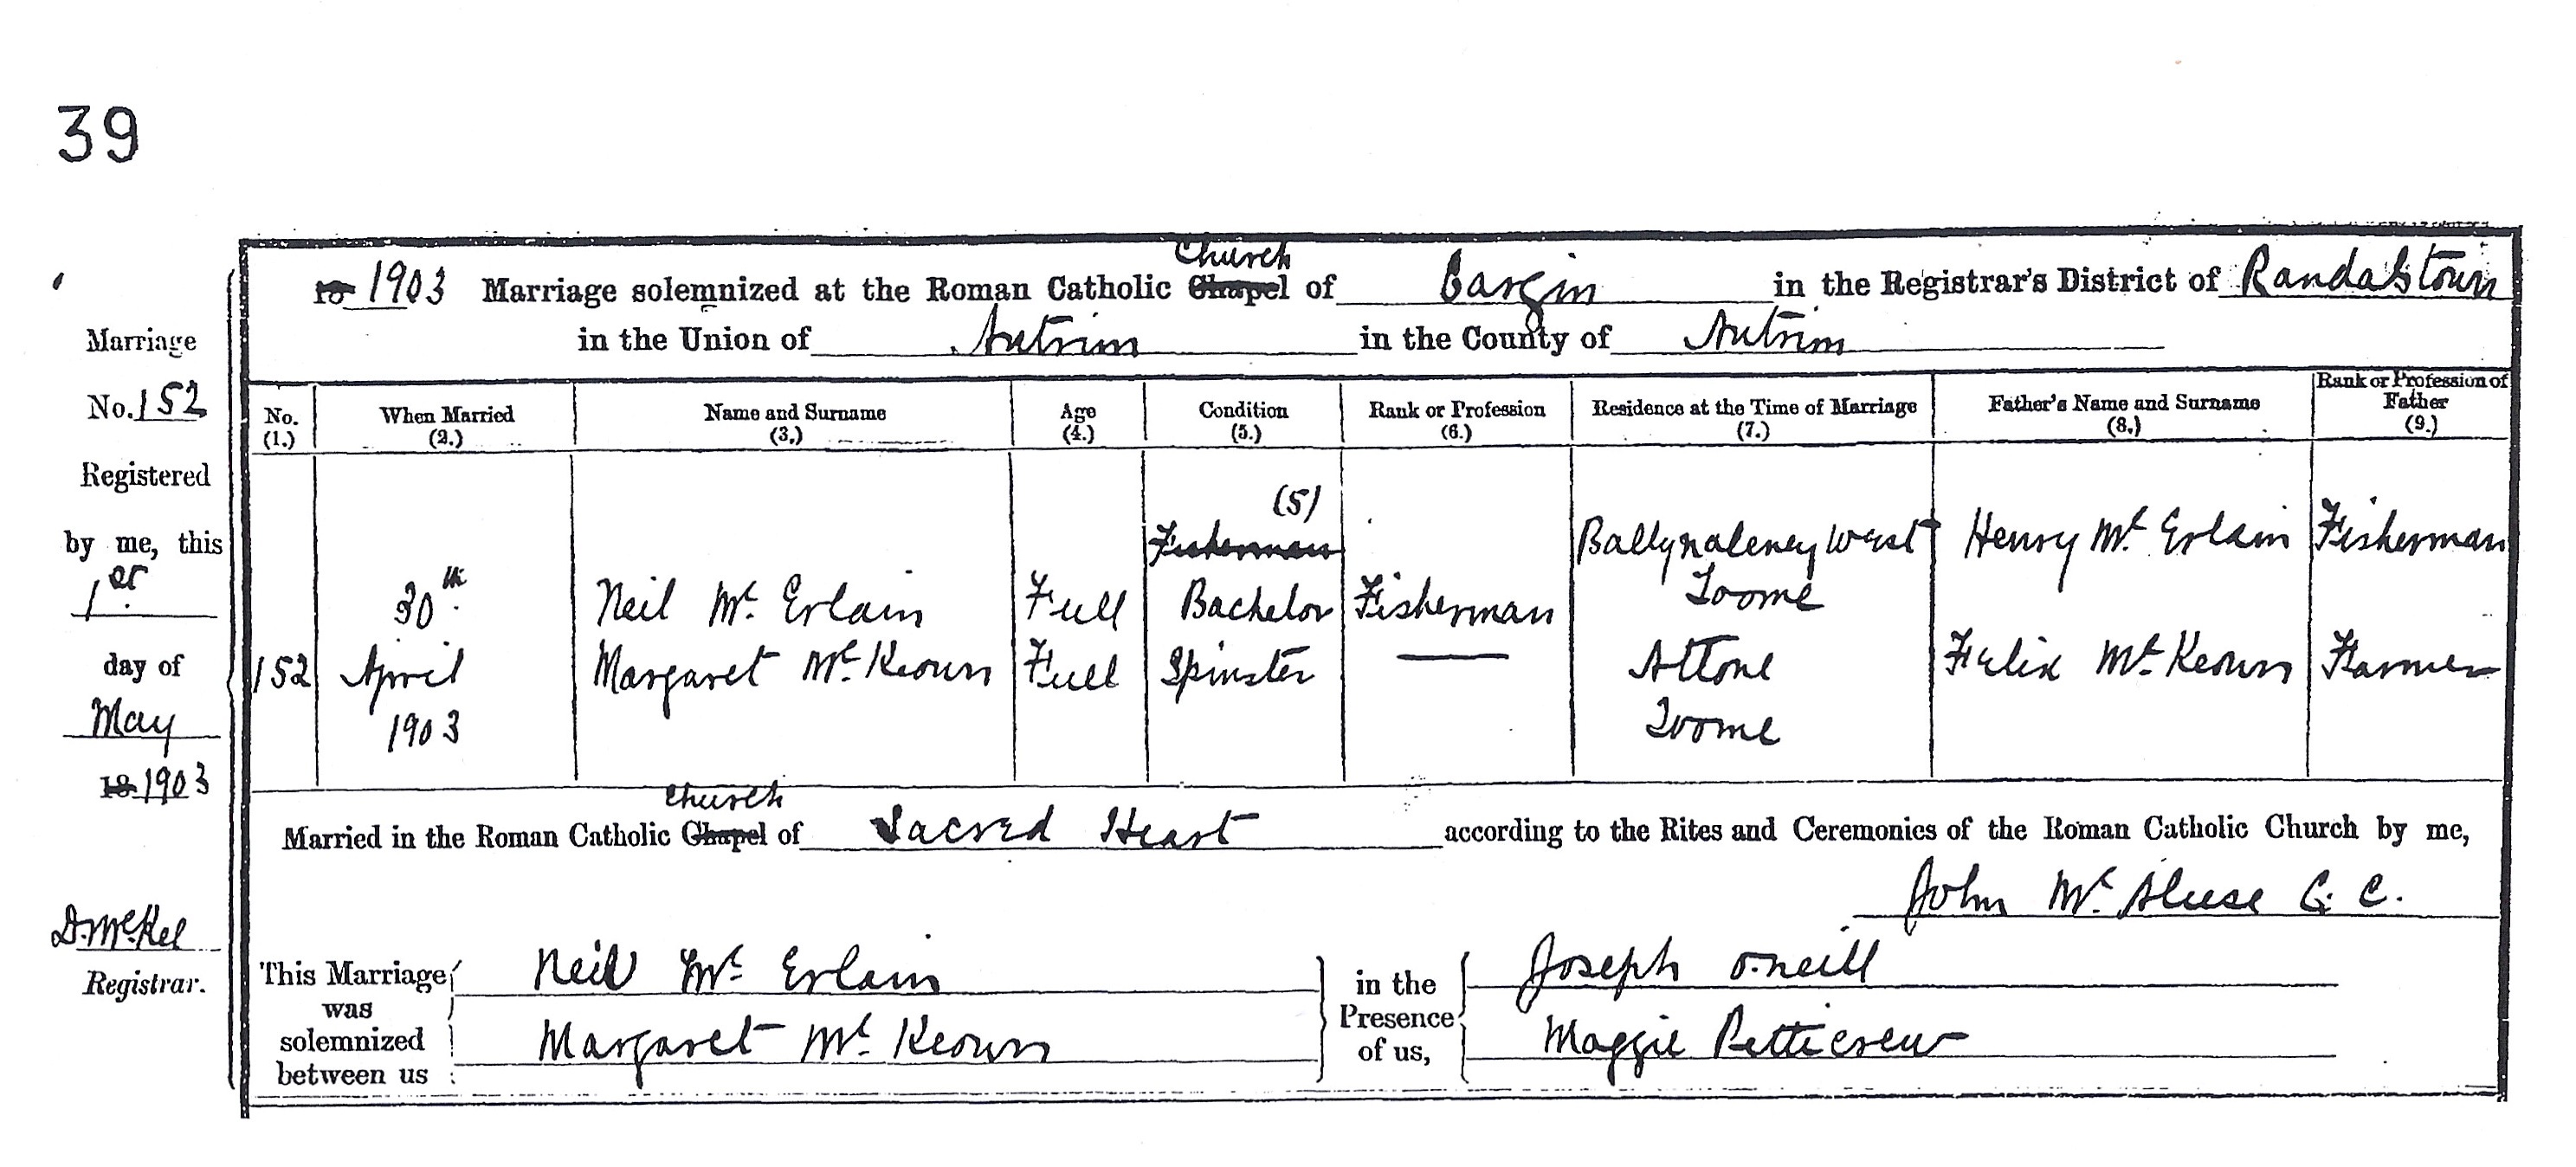 39
Church
18 1903 Marriage solemnized at the Roman Catholic Chapel of Cargin in the Registrar's District of Randalstown
in the Union of Antrim in the County of Antrim
Marriage
No. 152
Registered
by me, this
1st
day of
May
18 1903
Registrar.
No. (1.) When Married (2.) Name and Surname (3.) Age (4.) Condition (5.) Rank or Profession (6.) Residence at the Time of Marriage (7.) Father's Name and Surname (8.) Rank or Profession of Father (9.)
(5)
Fisherman Ballynaleney West Henry Mc Erlain Fisherman
30th Neil Mc Erlain Full Bachelor Fisherman Toome
152 April Margaret Mc Keown Full Spinster — Attone Felix Mc Keown Farmer
1903 Toome
Church
Married in the Roman Catholic Chapel of Sacred Heart according to the Rites and Ceremonies of the Roman Catholic Church by me,
John Mc Aleese C. C.
This Marriage was solemnized between us
Neil Mc Erlain
Margaret Mc Keown
in the Presence of us,
Joseph O'Neill
Maggie Petticrew